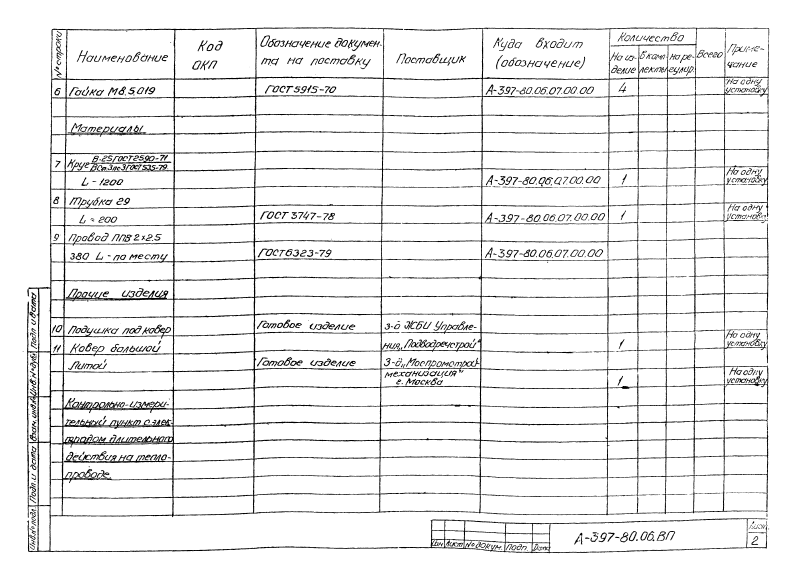 № строки Наименование Код ОКП Обозначение докумен- та на поставку Поставщик Куда входит (обозначение) Количество Всего Приме- чание
На из- делие В комп- лекты на ре- гулир.
6 Гайка М8.5.019 ГОСТ 5915-70 А-397-80.06.07.00.00 4 На одну установку
Материалы
7 Круг В-25 ГОСТ 2590-71
L-1200 А-397-80.06.07.00.00 1 На одну установку
8 Трубка 29
L=200 ГОСТ 3747-78 А-397-80.06.07.00.00 1 На одну установку
9 Провод ППВ 2×2.5
380 L-по месту ГОСТ 6323-79 А-397-80.06.07.00.00
Прочие изделия
10 Подушка под ковер Готовое изделие З-д ЖБИ Управле-
ния „Подводречстрой" 1 На одну установку
11 Ковер большой
литой Готовое изделие З-д „Моспромстрой-
механизация"
г. Москва 1 На одну установку
Контрольно-измери-
тельный пункт с элек-
тродом длительного
действия на тепло-
проводе.
Изм Лист № докум. Подп. Дата А-397-80.06.ВП Лист 2
Инв.№ подл. Подп. и дата Взам. инв.№ Инв.№ дубл. Подп. и дата